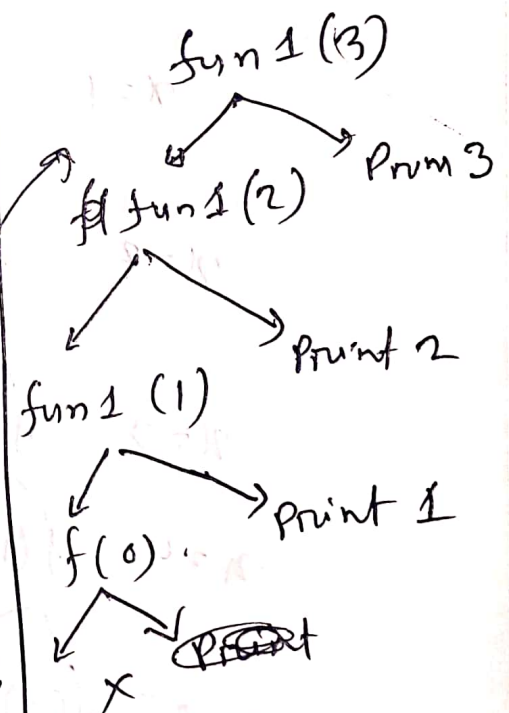 fun1(3)
Prum 3
fun1(2)
Print 2
fun1 (1)
Print 1
f(0).
Print
x